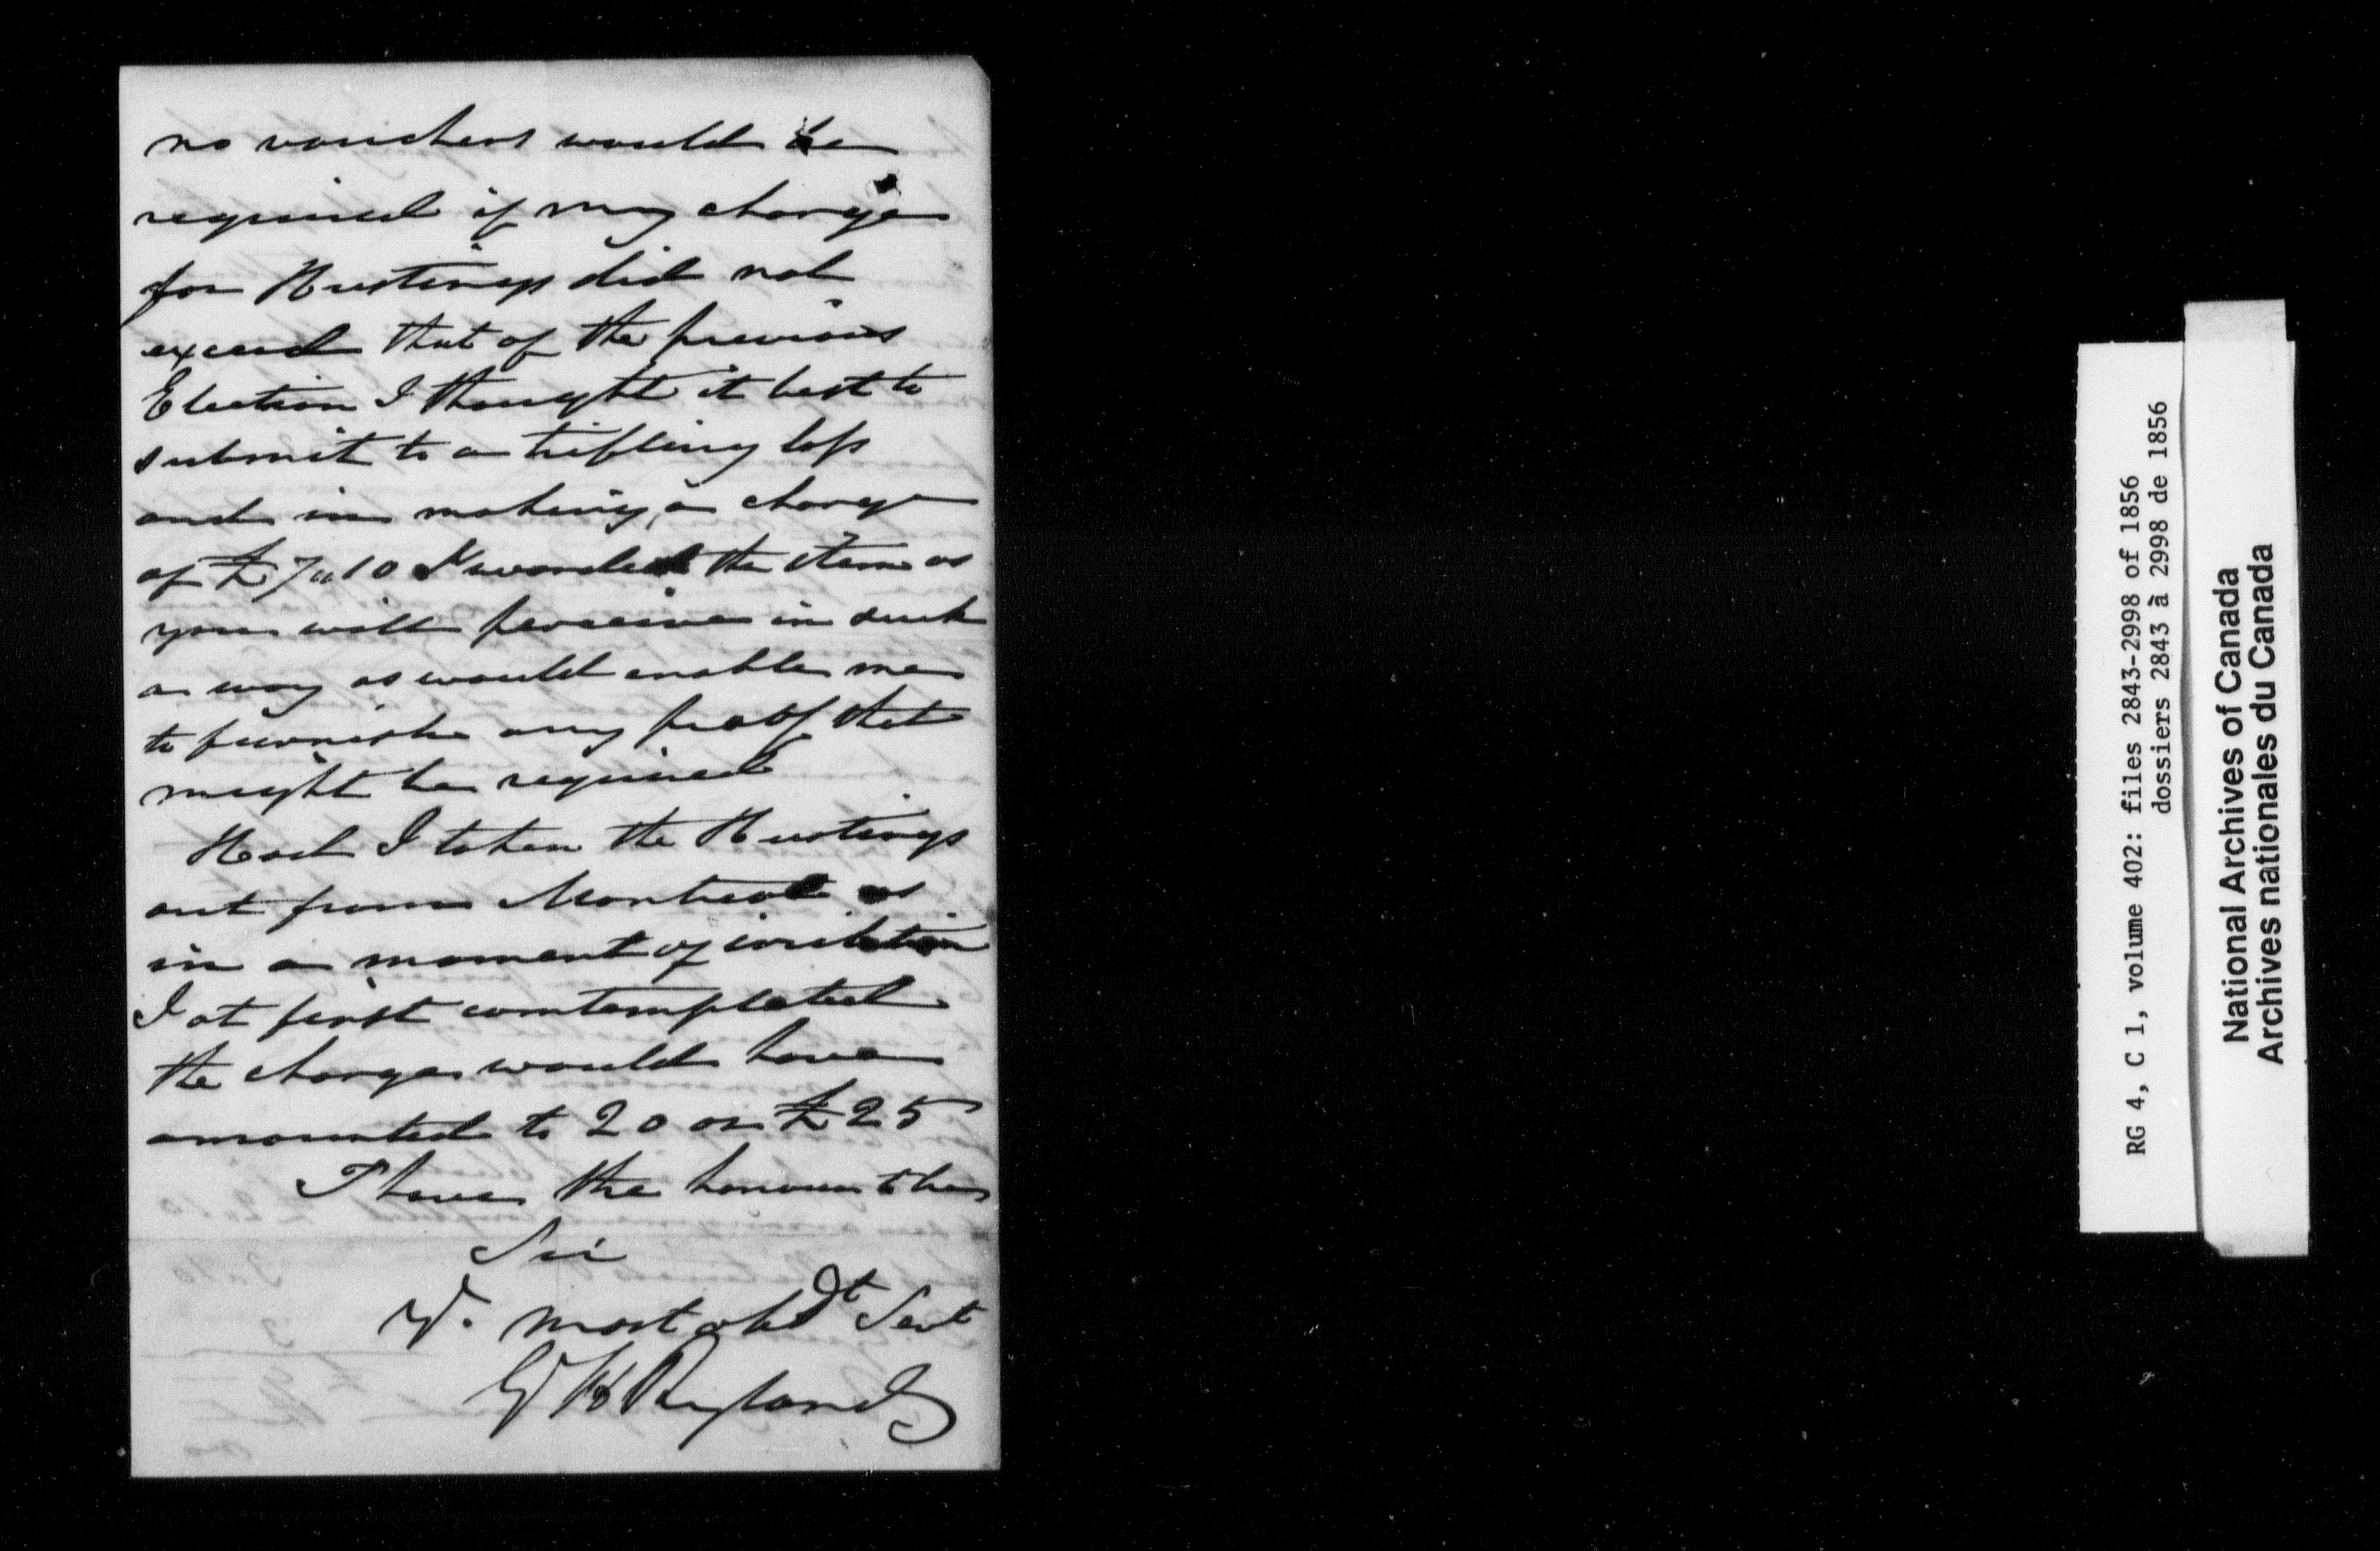 no vouchers would be
required if my charge
for Hustings did not
exceed that of the previous
Election I thought it best to
submit to a trifling loss
and in making a charge
of £7"10 I worded the item as
you will perceive in such
a way as would enable me
to furnish any proof that
might be required
Had I taken the Hustings
out from Montreal as
in a moment of irritation
I at first contemplated
the charge would have
amounted to 20 or £25
I have the honour to be
Sir
Yr. most obdt Servt
G H Ryland
RG 4, C 1, volume 402: files 2843-2998 of 1856
dossiers 2843 à 2998 de 1856
National Archives of Canada
Archives nationales du Canada